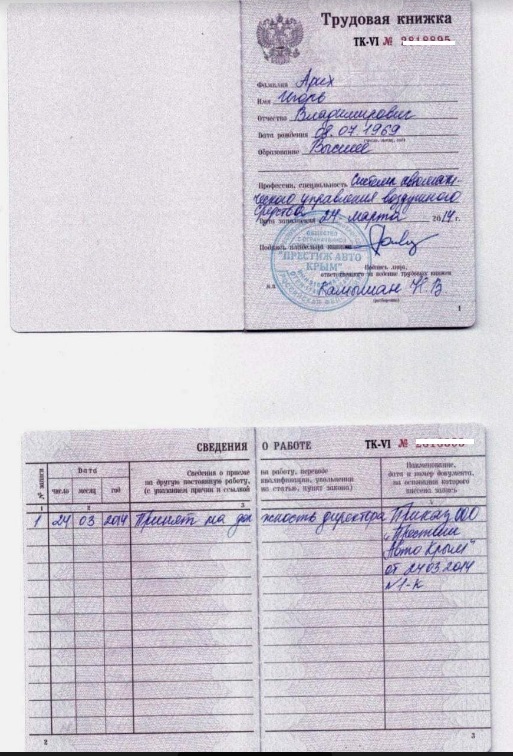 Трудовая книжка
ТК-VI №
Фамилия Арих
Имя Игорь
Отчество Владимирович
Дата рождения 08.07.1969
(число, месяц, год)
Образование Высшее
Профессия, специальность Системы автомати-
ческого управления воздушного
средства
Дата заполнения 24 марта 2014 г.
Подпись владельца книжки
ОБЩЕСТВО
"ПРЕСТИЖ АВТО
КРЫМ"
Подпись лица,
ответственного за ведение трудовых книжек
М.П.
(разборчиво)
1
СВЕДЕНИЯ О РАБОТЕ ТК-VI №
№ записи
Дата
число месяц год
Сведения о приеме на работу, переводе
на другую постоянную работу, квалификации, увольнении
(с указанием причин и ссылкой на статью, пункт закона)
Наименование,
дата и номер документа,
на основании которого
внесена запись
1 2 3 4
1 24 03 2014 Принят на должность директора Приказ ООО
"Престиж
Авто Крым"
от 24.03.2014
№1-К
2
3